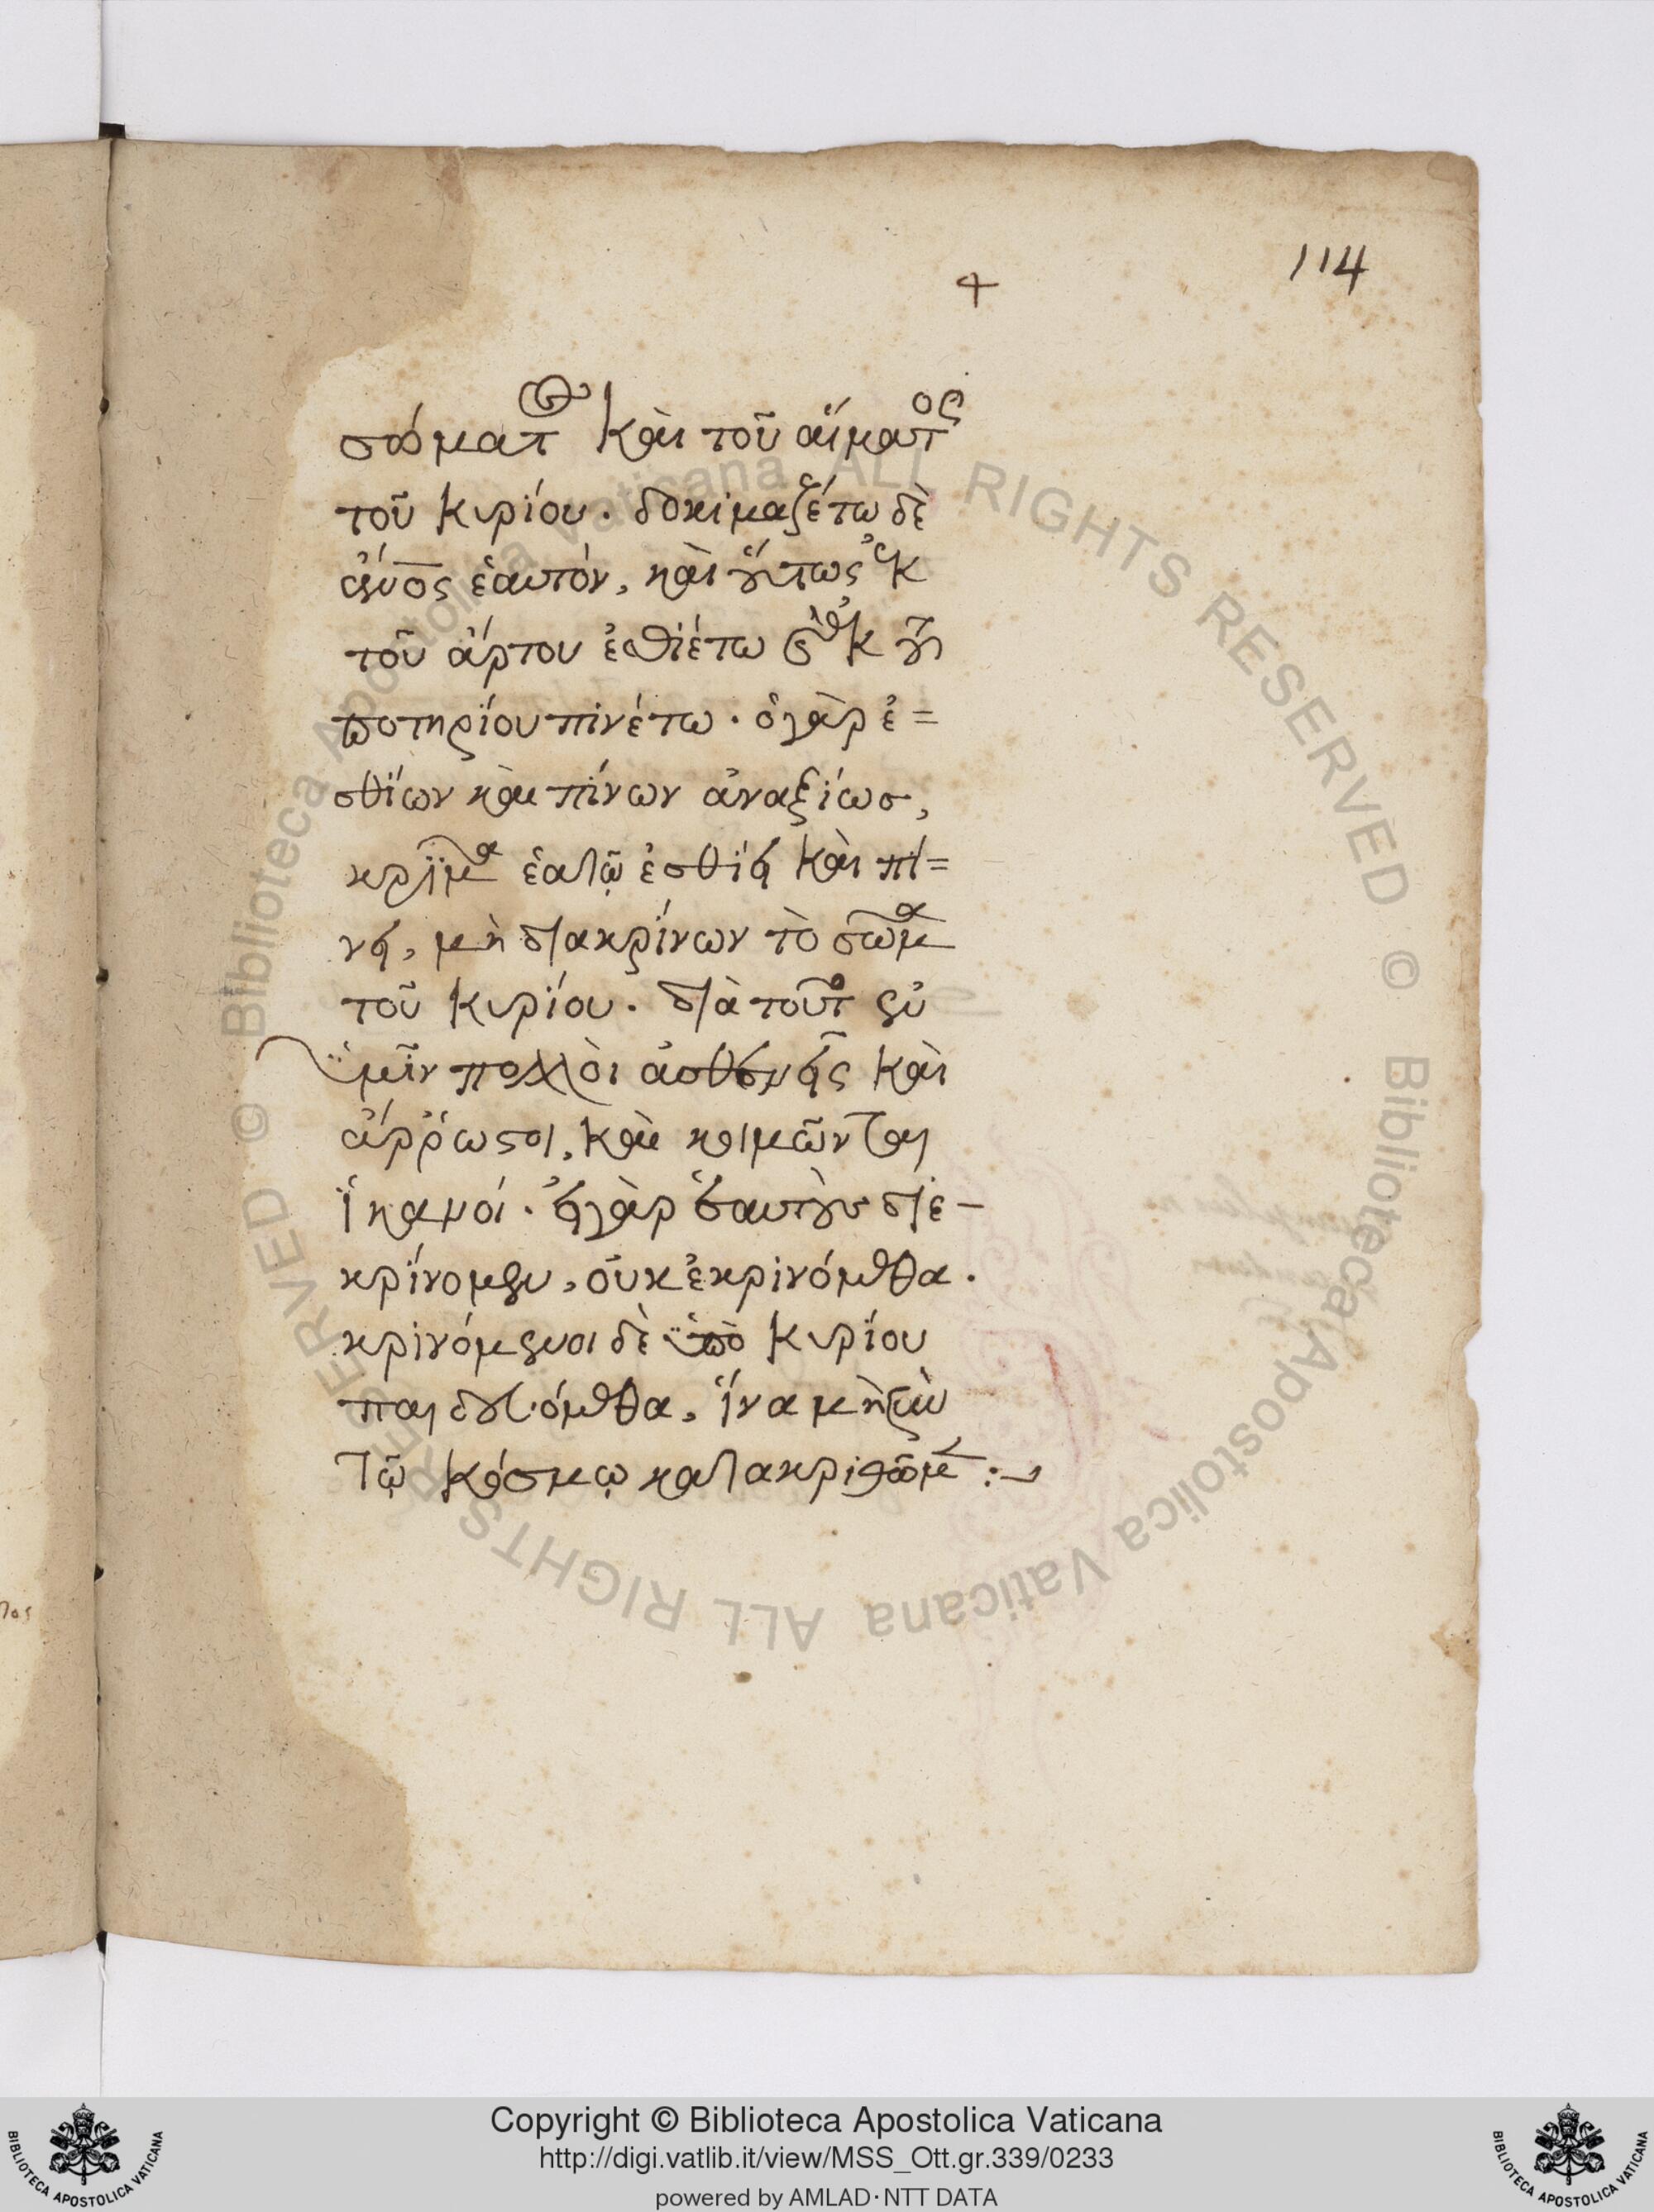 114
+
σώματος καὶ τοῦ αἵματος
τοῦ κυρίου. δοκιμαζέτω δὲ
ἄνος ἑαυτόν, καὶ οὕτως ἐκ
τοῦ ἄρτου ἐσθιέτω καὶ ἐκ τοῦ
ποτηρίου πινέτω. ὁ γὰρ ἐ=
σθίων καὶ πίνων ἀναξίωσ,
κρῖμα ἑαυτῷ ἐσθίει καὶ πί=
νει, μὴ διακρίνων τὸ σῶμα
τοῦ κυρίου. διὰ τοῦτο ἐν
ὑμῖν πολλοὶ ἀσθενεῖς καὶ
ἄρρωστοι, καὶ κοιμῶνται
ἱκανοί. εἰ γὰρ ἑαυτοὺς διε-
κρίνομεν, οὐκ ἐκρινόμεθα.
κρινόμενοι δὲ ὑπὸ κυρίου
παιδευόμεθα, ἵνα μὴ σὺν
τῷ κόσμῳ κατακριθῶμεν :-
Biblioteca Apostolica Vaticana ALL RIGHTS RESERVED © Biblioteca Apostolica Vaticana ALL RIGHTS RESERVED ©
Copyright © Biblioteca Apostolica Vaticana
http://digi.vatlib.it/view/MSS_Ott.gr.339/0233
powered by AMLAD·NTT DATA
BIBLIOTECA APOSTOLICA VATICANA
BIBLIOTECA APOSTOLICA VATICANA